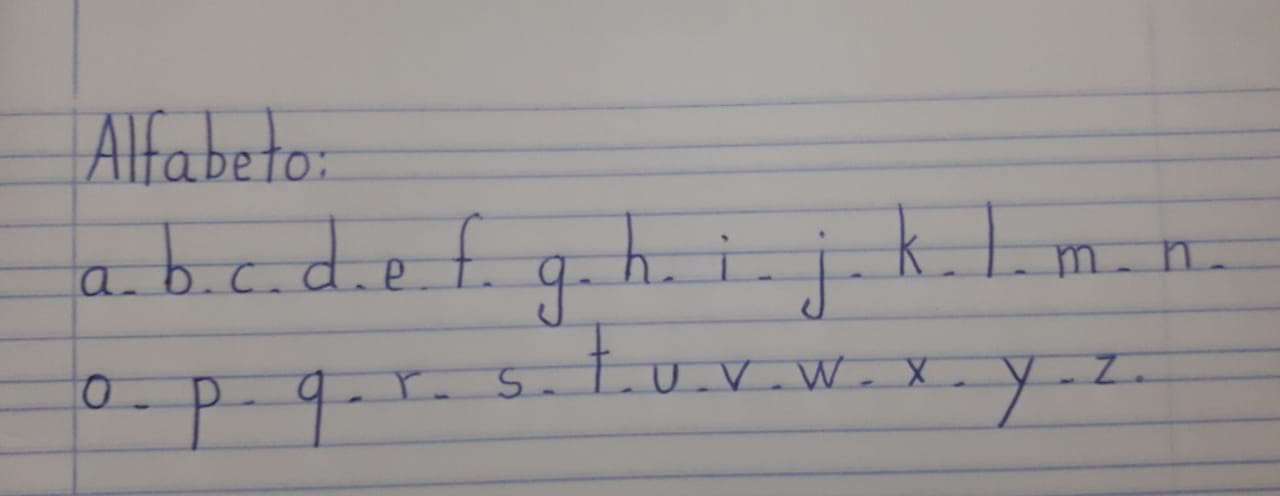 Alfabeto:
a - b. c. d. e. f. g - h. i - j - k - l - m - n -
o - p - q - r - s - t. u - v - w - x - y - z.